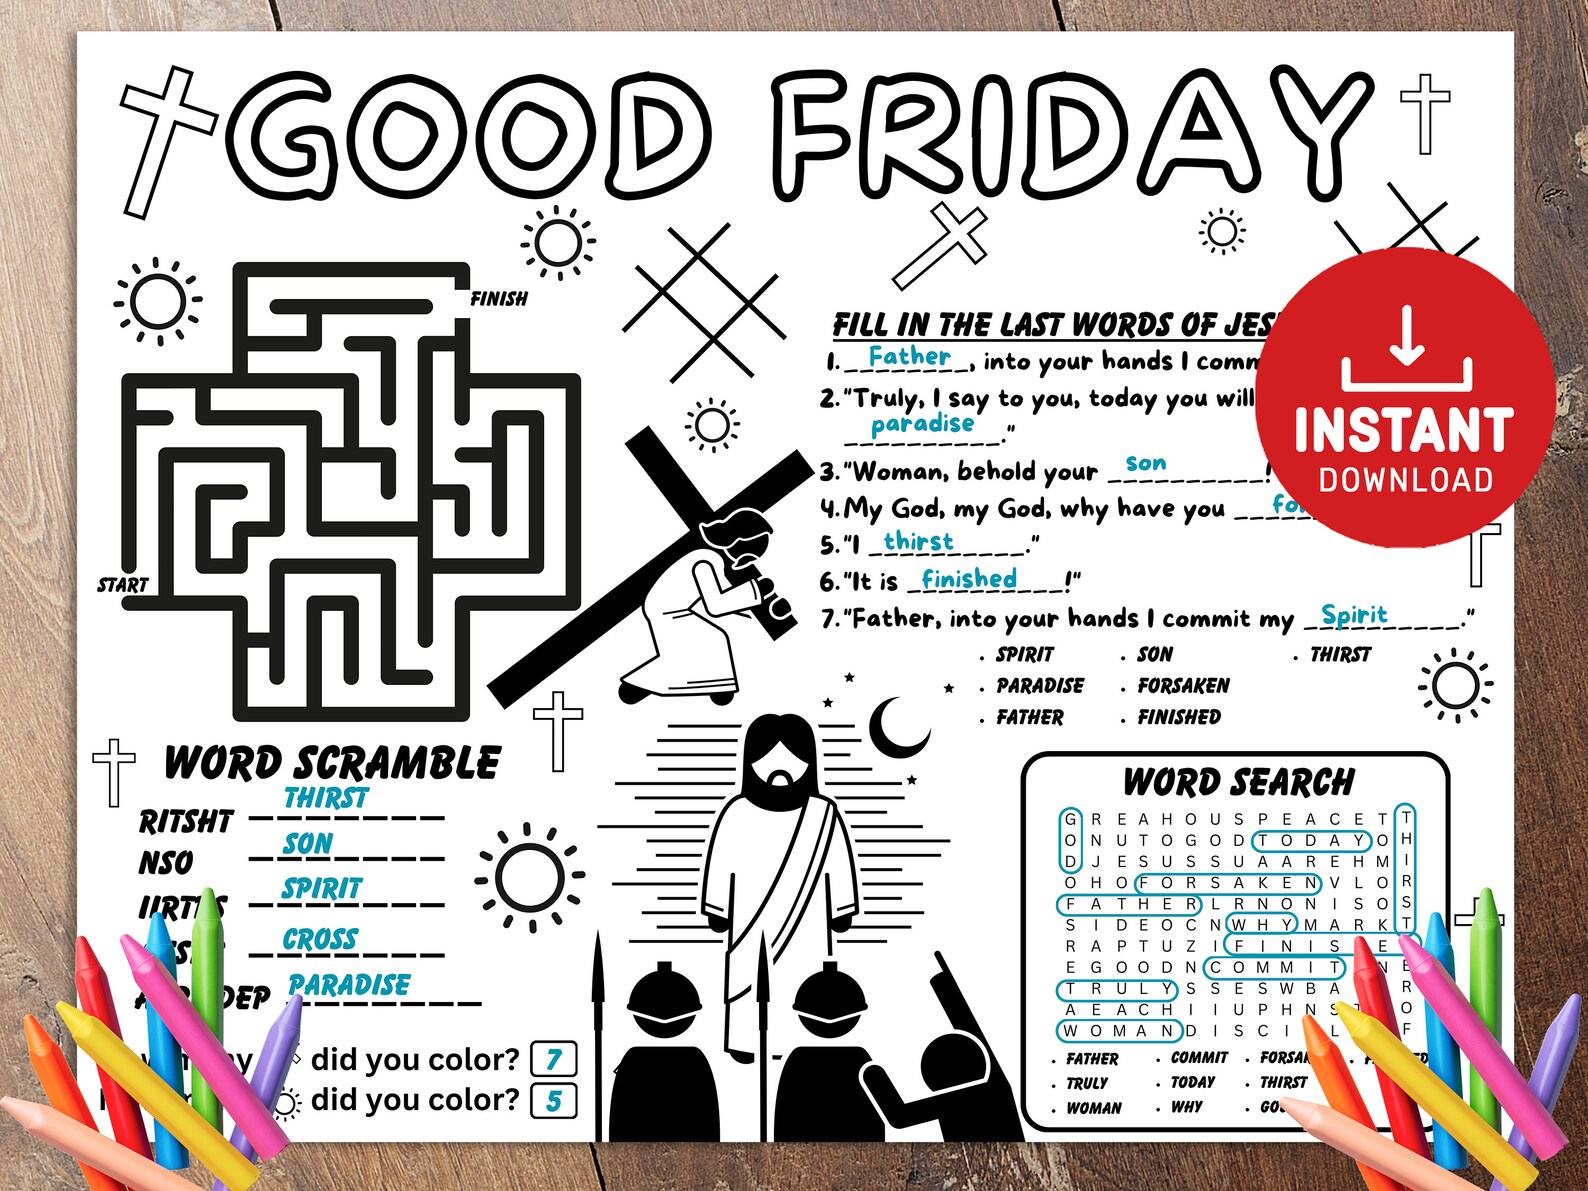 GOOD FRIDAY
FINISH
START
FILL IN THE LAST WORDS OF
1. Father, into your hands I
2. "Truly, I say to you, today you will
paradise."
3. "Woman, behold your son!
4. My God, my God, why have you
5. "I thirst."
6. "It is finished!"
7. "Father, into your hands I commit my Spirit."
• SPIRIT • SON • THIRST
• PARADISE • FORSAKEN
• FATHER • FINISHED
INSTANT
DOWNLOAD
WORD SCRAMBLE
RITSHT THIRST
NSO SON
SPIRIT
CROSS
PARADISE
did you color? 7
did you color? 5
WORD SEARCH
G R E A H O U S P E A C E T T
O N U T O G O D T O D A Y O H
D J E S U S S U A A R E H M I
O H O F O R S A K E N V L O R
F A T H E R L R N O N I S O S
S I D E O C N W H Y M A R K T
R A P T U Z I F I N I S E
E G O O D N C O M M I T N E
T R U L Y S S E S W B A R
A E A C H I I U P H N S O
W O M A N D I S C I L F
• FATHER • COMMIT
• TRULY • TODAY • THIRST
• WOMAN • WHY